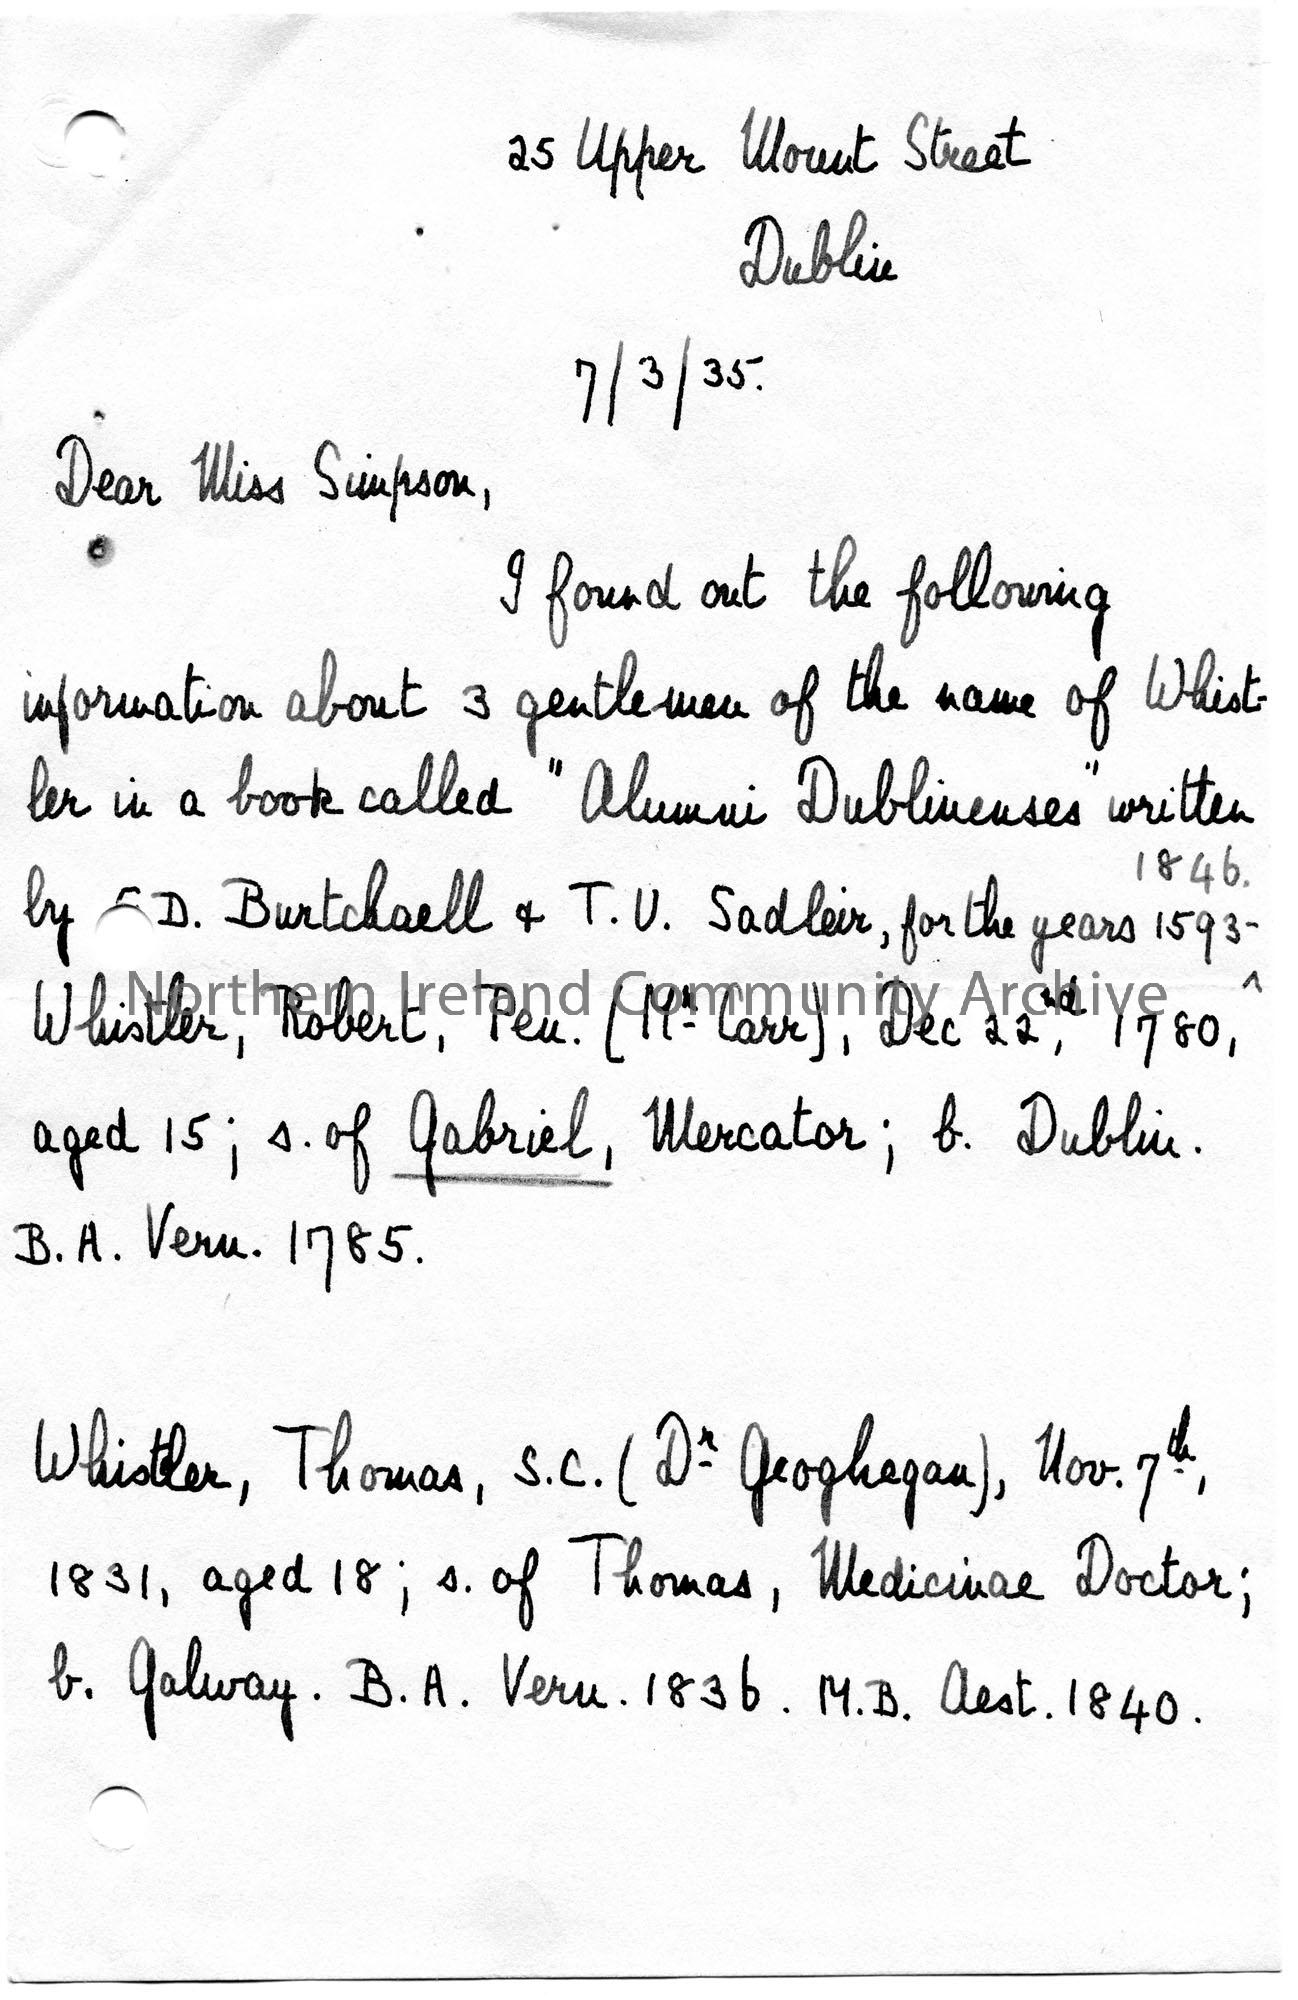 25 Upper Mount Street
Dublin
7/3/35.
Dear Miss Simpson,
I found out the following
information about 3 gentlemen of the name of Whist-
ler in a book called "Alumni Dublinenses" written
1846.
by D. Burtchaell & T. U. Sadleir, for the years 1593-
^
Northern Ireland Community Archive
Whistler, Robert, Pen. [Mr Carr], Dec 22nd, 1780,
aged 15; s. of Gabriel, Mercator; b. Dublin.
B.A. Vern. 1785.
Whistler, Thomas, S.C. (Dr Geoghegan), Nov. 7th,
1831, aged 18; s. of Thomas, Medicinae Doctor;
b. Galway. B.A. Vern. 1836. M.B. Aest. 1840.